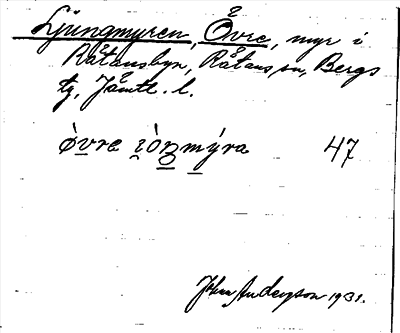 Ljungmyren, Övre, myr i
Råtansbyn, Råtans sn, Bergs
tg, Jämtl. l.
óvre ı̯óꞑmýra 47
John Andersson 1931.